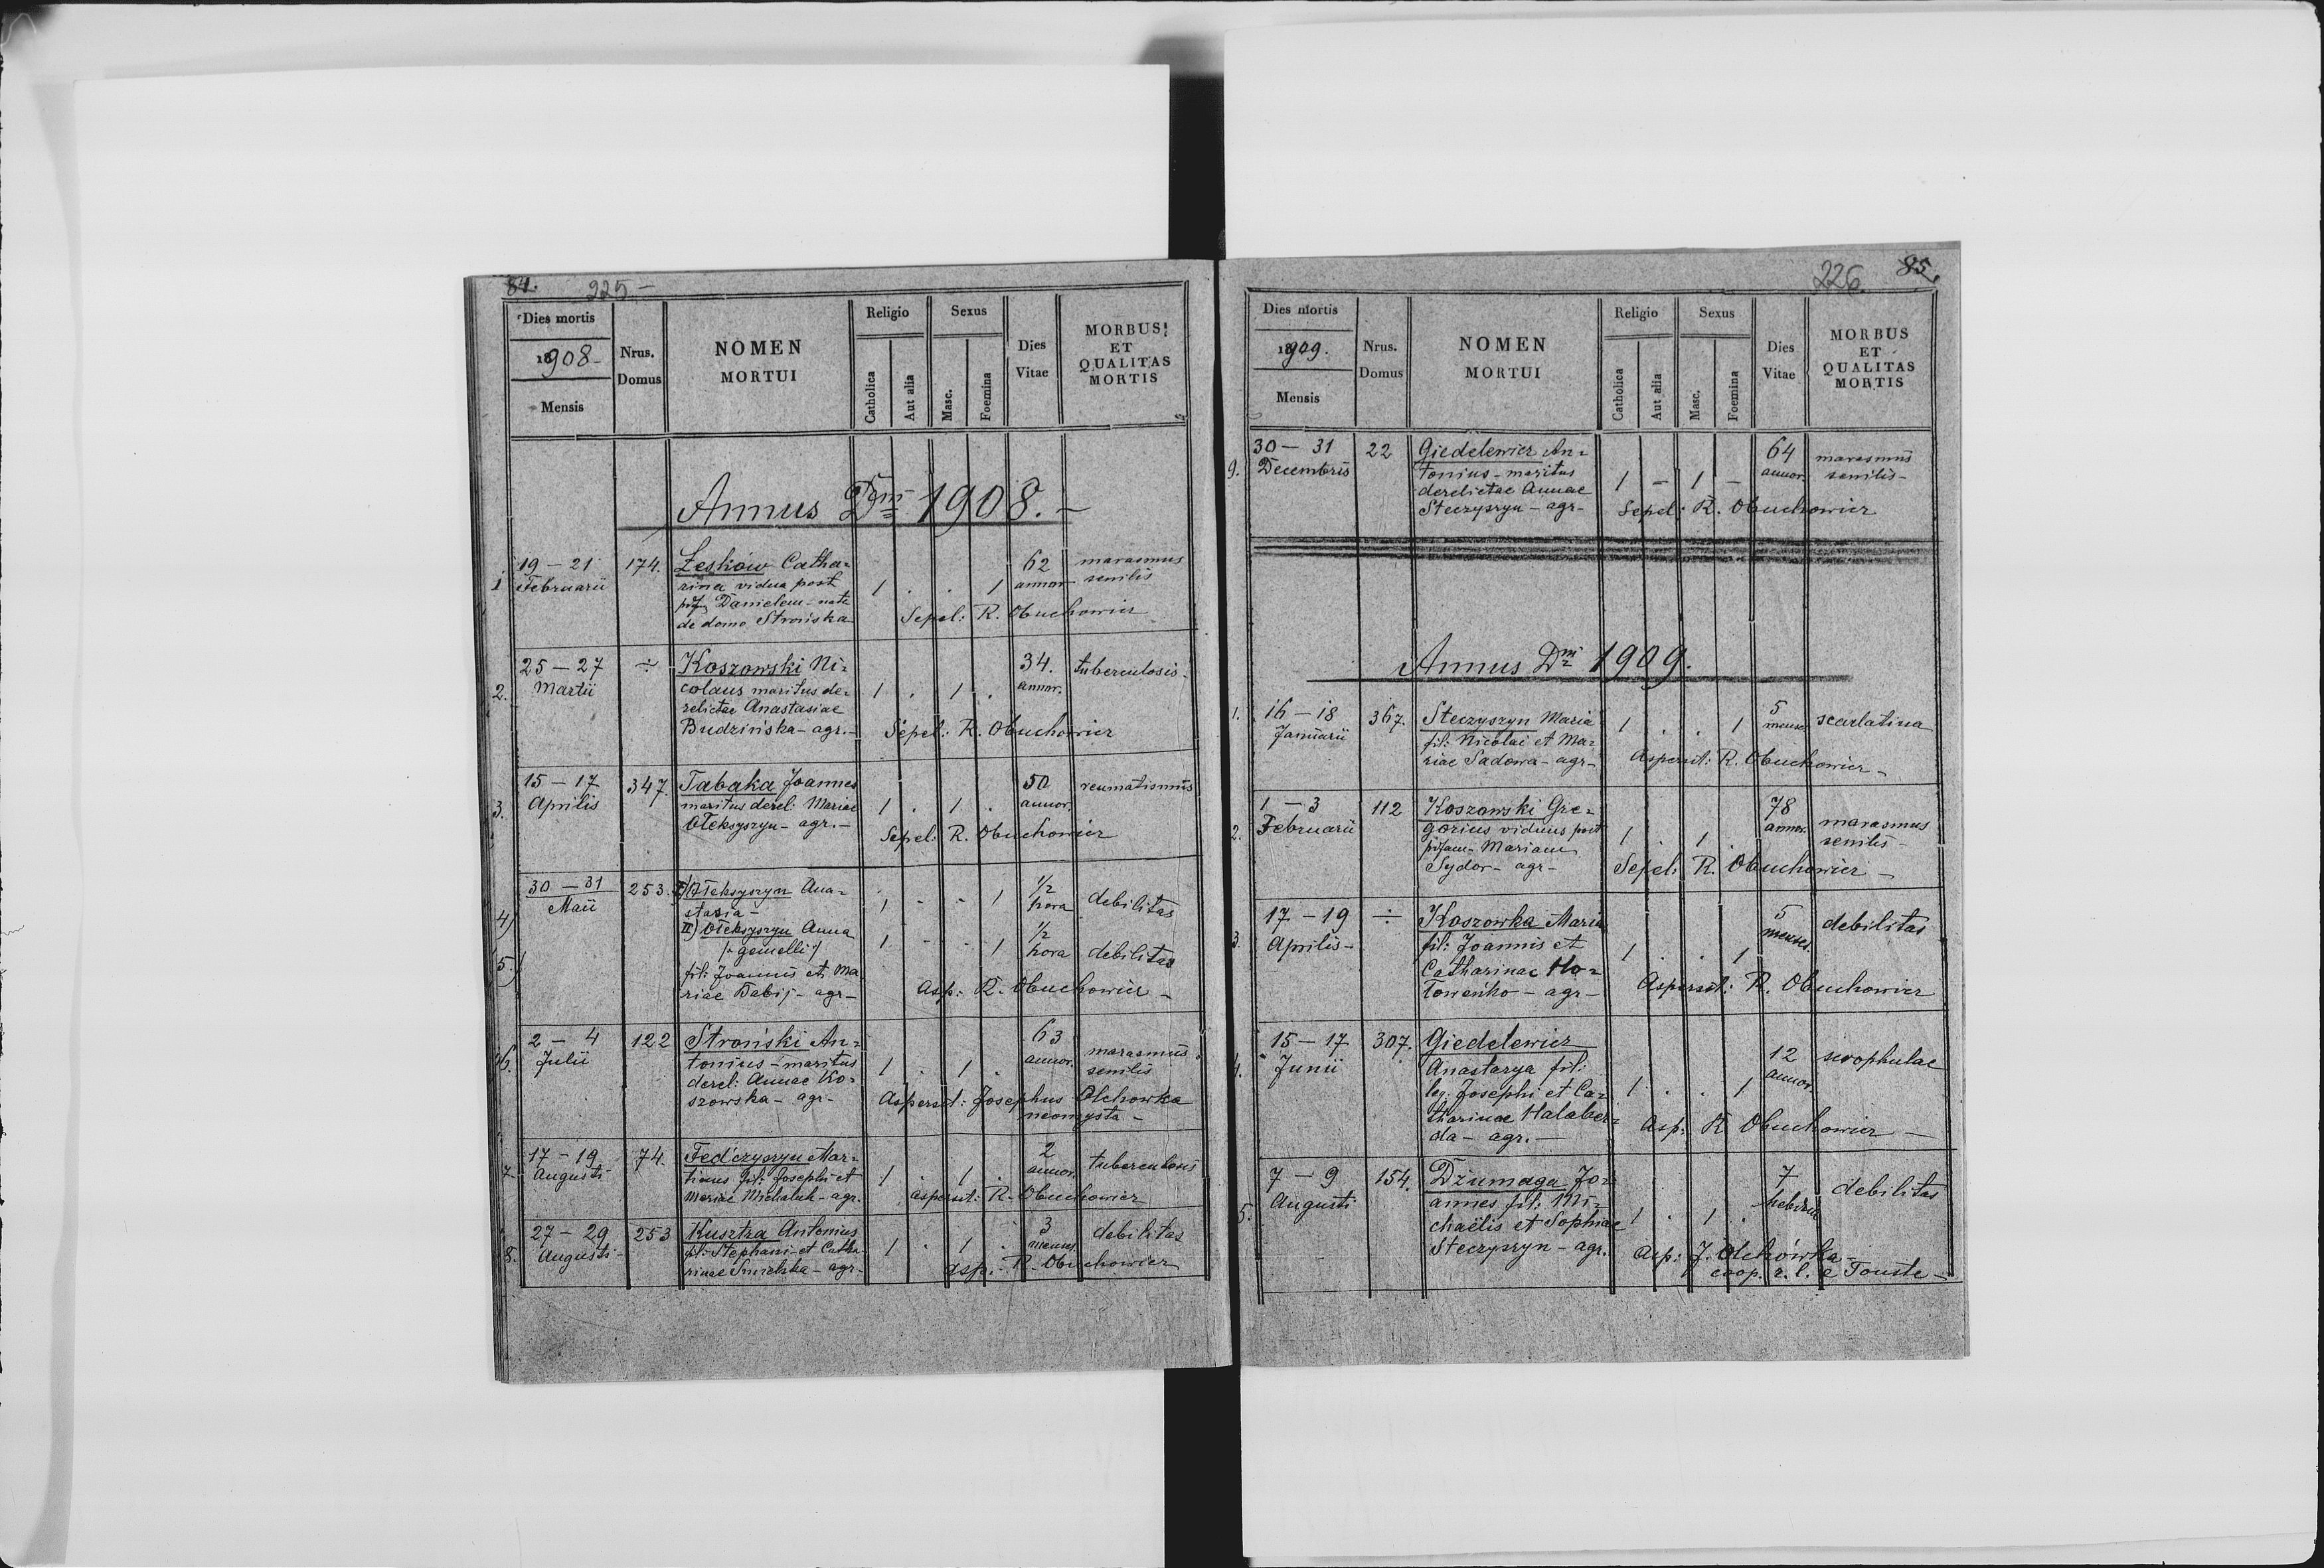 84. 225 -
Dies mortis
18908-
Mensis
Nrus.
Domus
NOMEN
MORTUI
Religio
Catholica
Aut alia
Sexus
Masc.
Foemina
Dies
Vitae
MORBUS
ET
QUALITAS
MORTIS
Annus Dni 1908. -
1 19 - 21 174. Leśków Catha= 62 marasmus
Februarii rina vidua post 1 . . 1 annor senilis
Danielem - nata
de domo Strońska Sepel: R. Obuchowicz
25 - 27 ÷ Koszowski Ni= 34. tuberculosis-
2. Martii colaus maritus de= 1 . 1 . annor.
relictae Anastasiae
Budzińska - agr. - Sepel: R. Obuchowicz
15 - 17 347. Tabaka Joannes 50 reumatismus
3. Aprilis maritus derel: Mariae 1 . 1 . annor.
Ołeksyszyn - agr. - Sepel: R. Obuchowicz
30 - 31 253. I) Ołeksyszyn Ana= 1/2
4) Maii stasia - 1 - - 1 hora debilitas
II) Ołeksyszyn Anna 1/2
5.) /: gemelli :/ 1 - - 1 hora debilitas
fil: Joannis et Ma
riae Babij - agr - Asp: R. Obuchowicz -
2 - 4 122 Stroński An= 63
6. Julii tonius - maritus 1 . 1 . annor. marasmus
derel: Annae Ko= senilis
szowska - agr - Aspersit: Josephus Olchowka
neomysta -
17 - 19 74. Fedczyszyn Mar= 2
7 Augusti tinus fil: Josephi et 1 . 1 . annor. tuberculosis
Mariae Michaluk - agr. aspersit: R. Obuchowicz
27 - 29 253 Kusztra Antonius 3 debilitas
8. Augusti - fil: Stephani et Catha 1 . 1 . menses
rinae - agr - asp. - R. Obuchowicz
226. 85.
Dies mortis
18909.
Mensis
Nrus.
Domus
NOMEN
MORTUI
Religio
Catholica
Aut alia
Sexus
Masc.
Foemina
Dies
Vitae
MORBUS
ET
QUALITAS
MORTIS
30 - 31 22 Giedelewicz An= 64 marasmus
9. Decembris tonius - maritus 1 - 1 - annor. senilis -
derelictae Annae
Steczyszyn - agr - Sepel: R. Obuchowicz
Annus Dni 1909.
1. 16 - 18 367. Steczyszyn Maria 1 . . 1 5 menses scarlatina
Januarii fil: Nicolai et Ma=
riae Sadowa - agr - Aspersit: R. Obuchowicz -
1 - 3 112 Koszowski Gre= 78
2. Februarii gorius viduus post 1 . 1 . annor. marasmus
Mariam senilis -
Sydor - agr - Sepel: R. Obuchowicz -
17 - 19 ÷ Koszowka Maria 5 debilitas
3. Aprilis - fil: Joannis et 1 . . 1 menses.
Catharinae Ho=
łoweńko - agr - Aspersit: R. Obuchowicz
15 - 17 307. Giedelewicz
4. Junii Anastazya fil: 12 scrophulae
leg. Josephi et Ca= 1 . . 1 annor.
tharinae Hałaber=
da - agr. - Asp: R Obuchowicz -
7 - 9 154. Dżumaga Jo= 7
5. Augusti annes fil: Mi= 1 . 1 . hebdom debilitas
chaëlis et Sophiae
Steczyszyn - agr. Asp: J. Olchówka -
coop. r. l. e Touste -